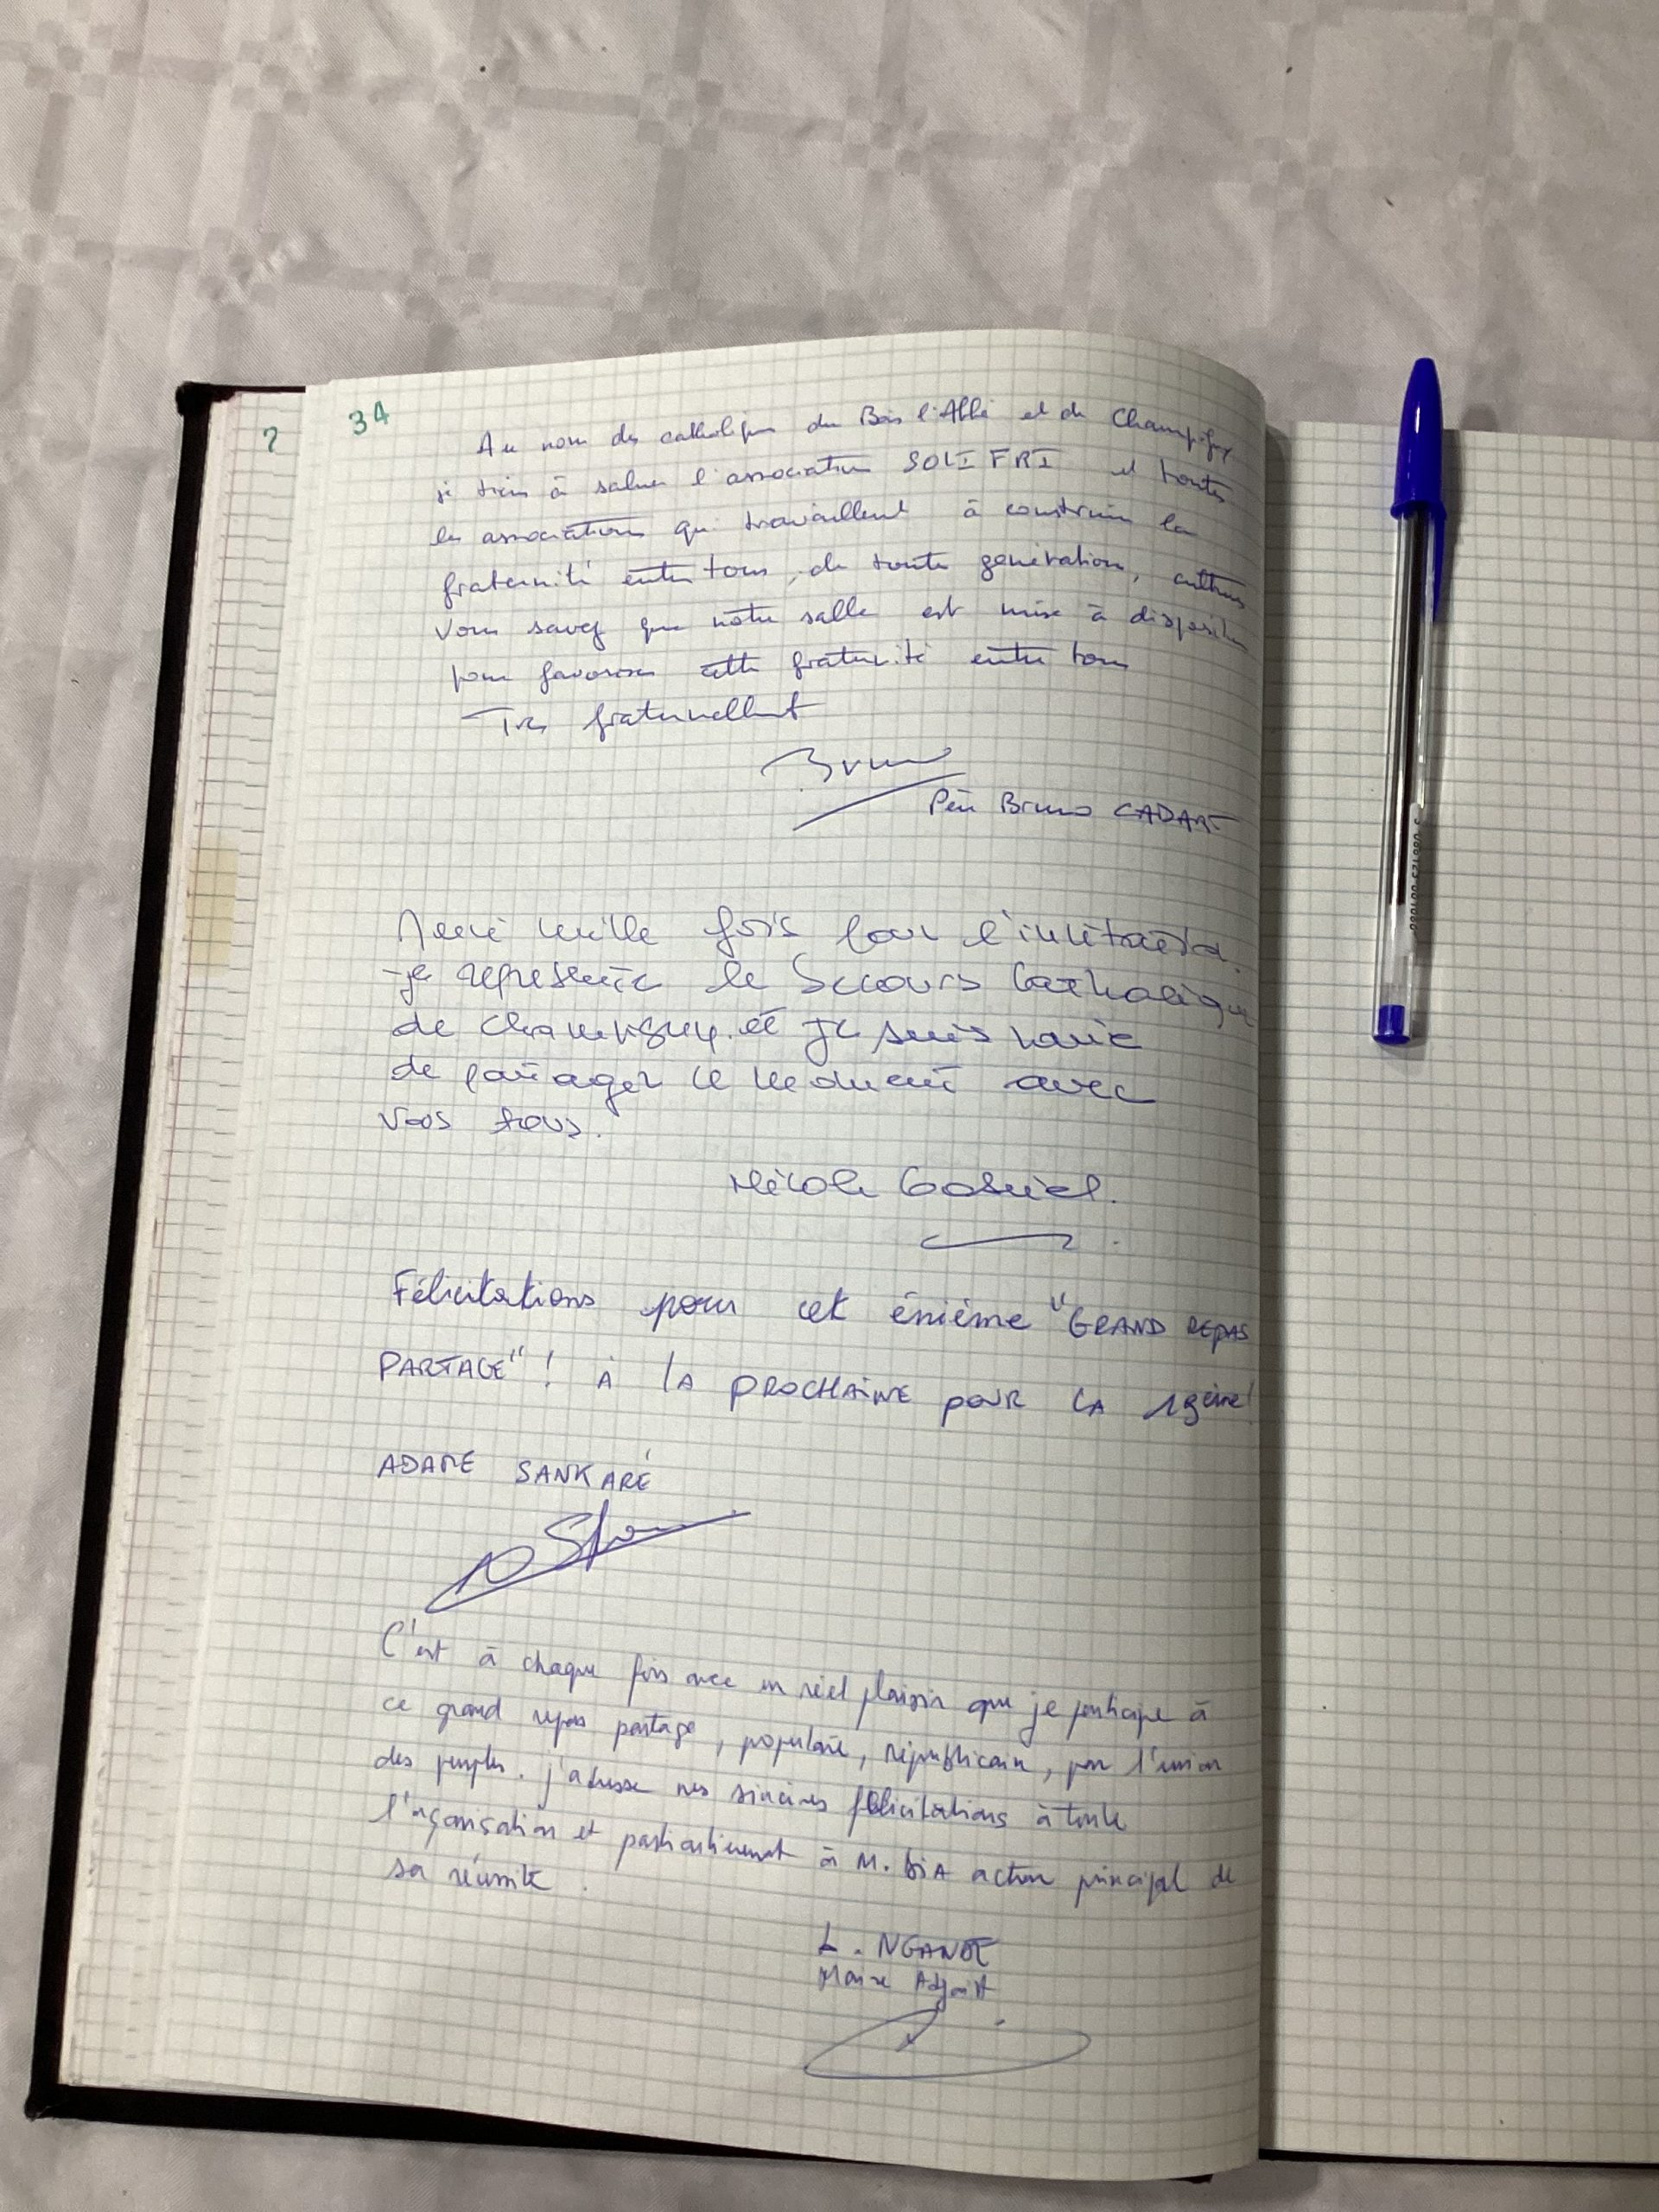 34
?
Au nom des catholiques du Bois l'Abbé et de Champigny
je tiens à saluer l'association SOLIFRI et toutes
les associations qui travaillent à construire la
fraternité entre tous, de toute génération, cultures
Vous savez que notre salle est mise à disposition
pour favoriser cette fraternité entre tous
Très fraternellement
Bruno
Père Bruno CADART
Merci mille fois pour l'invitation.
je représente le Secours Catholique
de Champigny. et je suis ravie
de partager ce moment avec
vous tous.
Nicole Gabriel.
Félicitations pour cet énième "GRAND REPAS
PARTAGE" ! À LA PROCHAINE POUR LA ème!
ADAME SANKARÉ
C'est à chaque fois avec un réel plaisir que je participe à
ce grand repas partage, populaire, républicain, pour l'union
des peuples. j'adresse mes sincères félicitations à toute
l'organisation et particulièrement à M. DIA acteur principal de
sa réussite.
L. NGANDE
Maire Adjoint